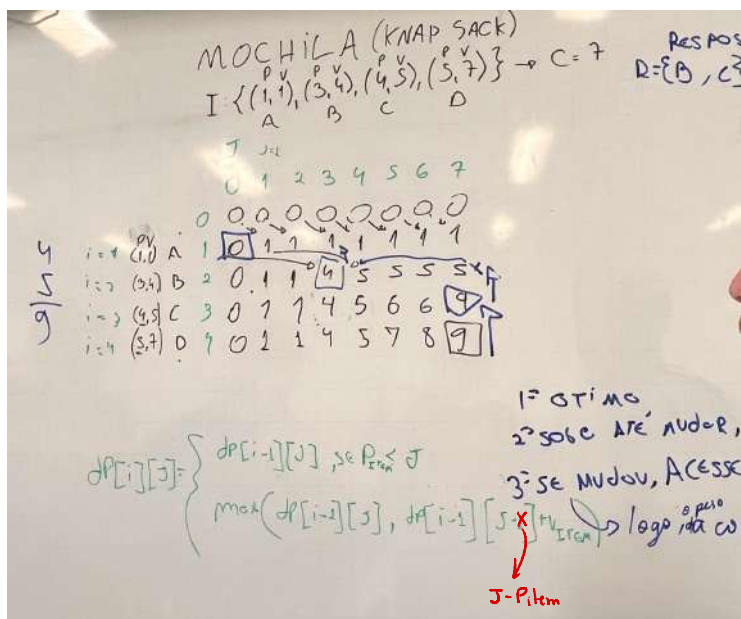 MOCHILA (KNAPSACK)
RESPOS
P V P V P V P V
I: {(1,1), (3,4), (4,5), (5,7)} → C = 7
R={B, C}
A B C D
J
0 1 2 3 4 5 6 7
0 0 0 0 0 0 0 0 0
PV
i=1 (1,1) A 1 0 1 1 1 1 1 1 1
i=2 (3,4) B 2 0 1 1 4 5 5 5 5
i=3 (4,5) C 3 0 1 1 4 5 6 6 9
i=4 (5,7) D 4 0 1 1 4 5 7 8 9
4
5
9
1º OTIMO
2º SOBE ATÉ MUDAR,
3º SE MUDOU, ACESSE
o peso
logo, dá co
dP[i][J]=
dp[i-1][J], se P_Item ≤ J
max(dp[i-1][J], dp[i-1][J-x]+V_Item)
J-Pitem